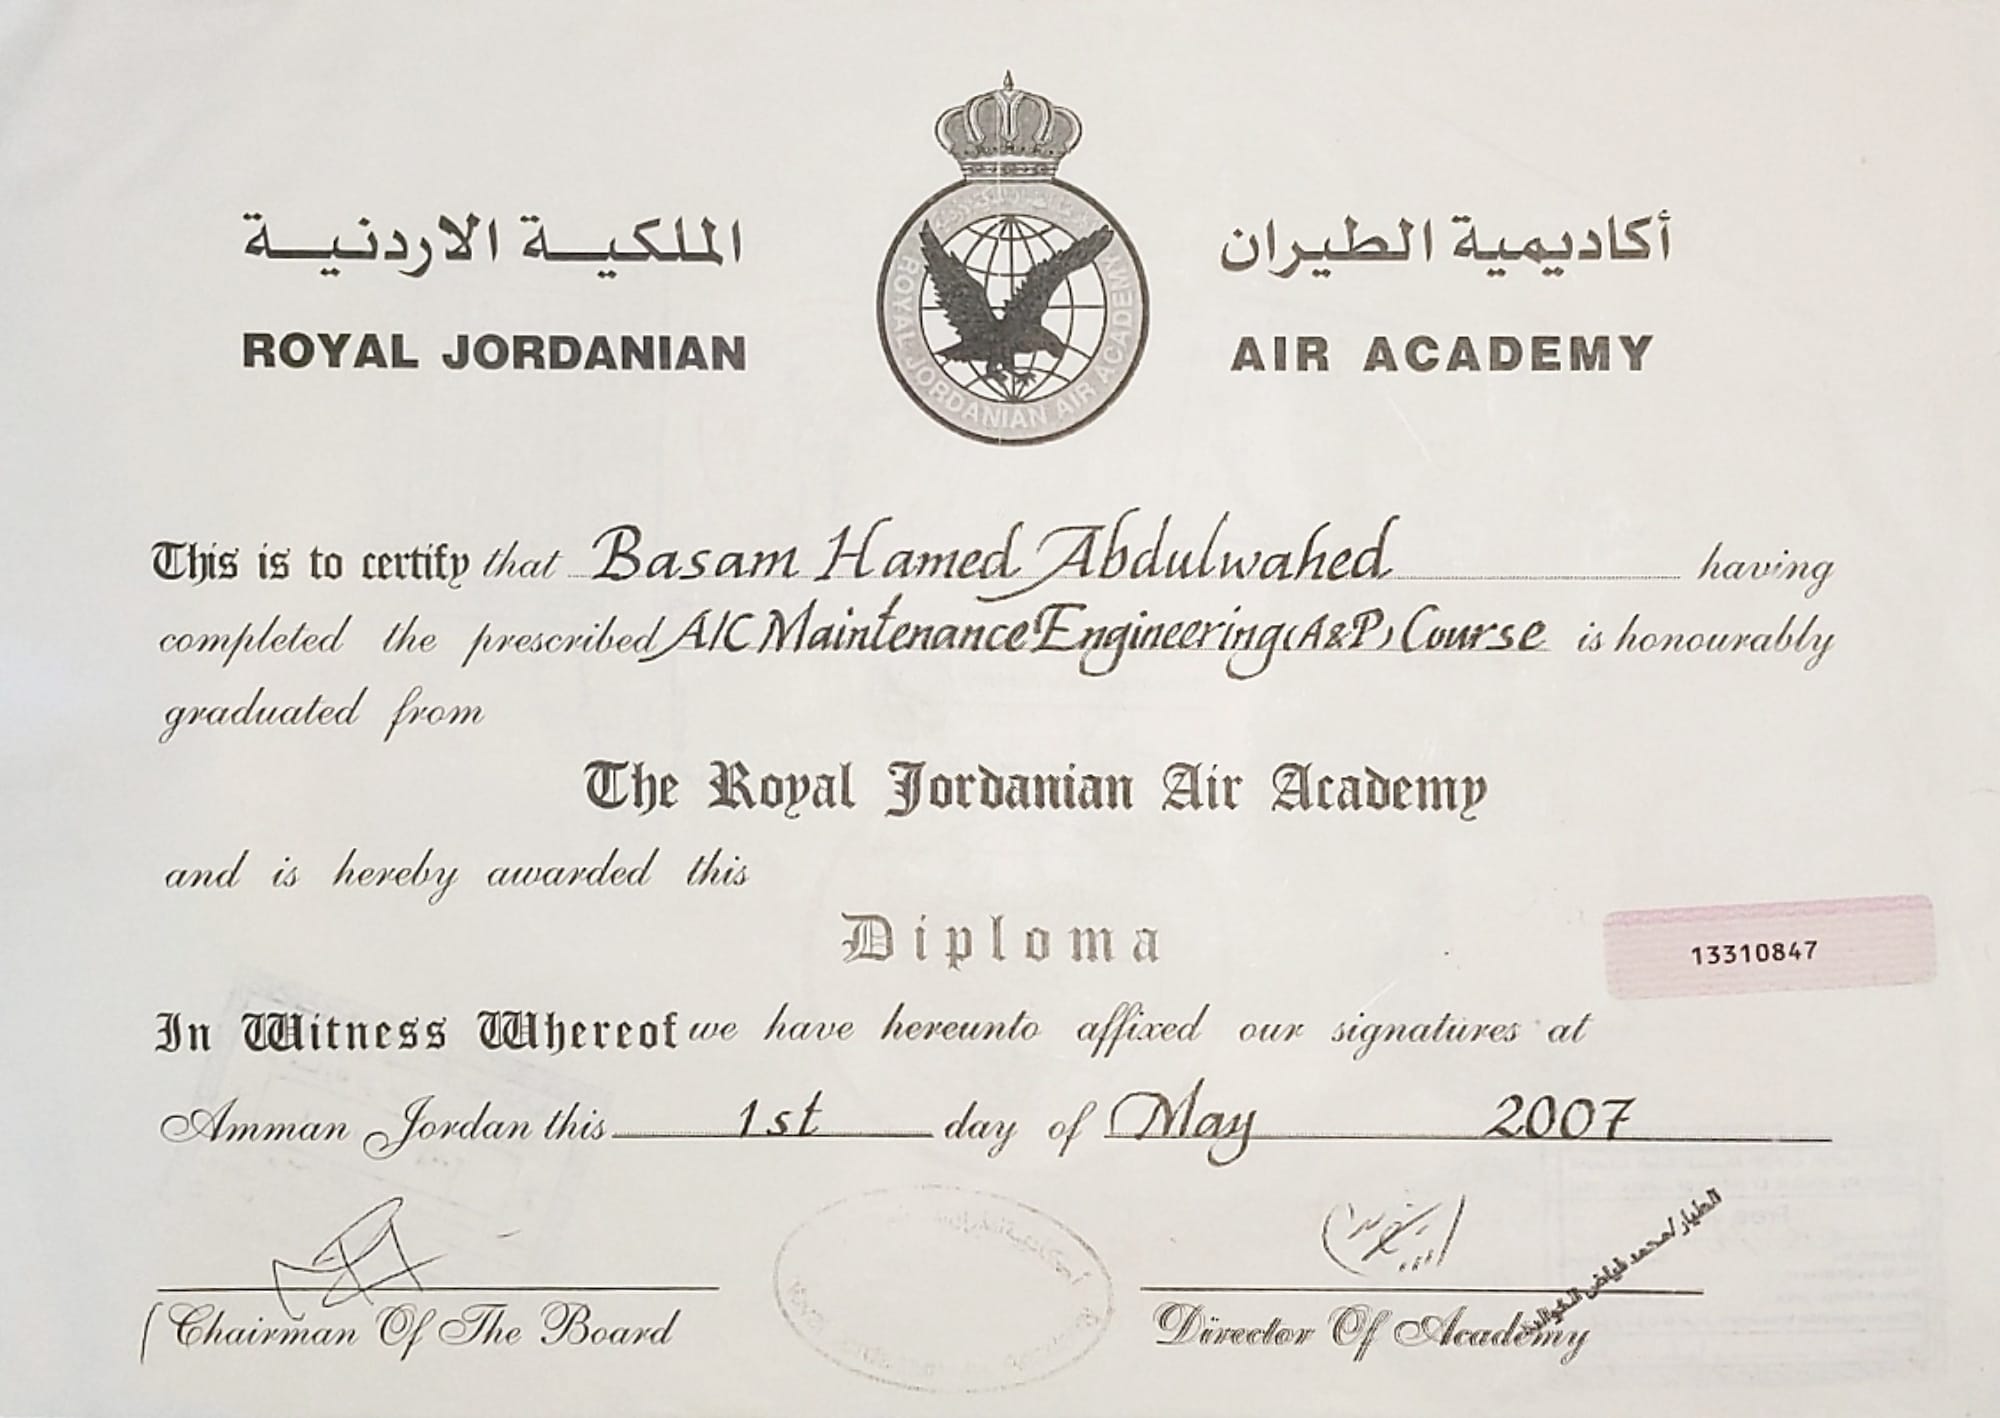 الملكية الاردنية
أكاديمية الطيران
ROYAL JORDANIAN
AIR ACADEMY
ROYAL JORDANIAN AIR ACADEMY
This is to certify that Basam Hamed Abdulwahed having
completed the prescribed A/C Maintenance Engineering (A&P) Course is honourably
graduated from
The Royal Jordanian Air Academy
and is hereby awarded this
Diploma
13310847
In Witness Whereof we have hereunto affixed our signatures at
Amman Jordan this 1st day of May 2007
الطيار/محمد فياض
Chairman Of The Board
Director Of Academy